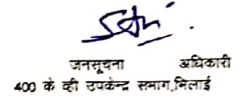 जनसूचना अधिकारी
400 के व्ही उपकेन्द्र सभाग,भिलाई